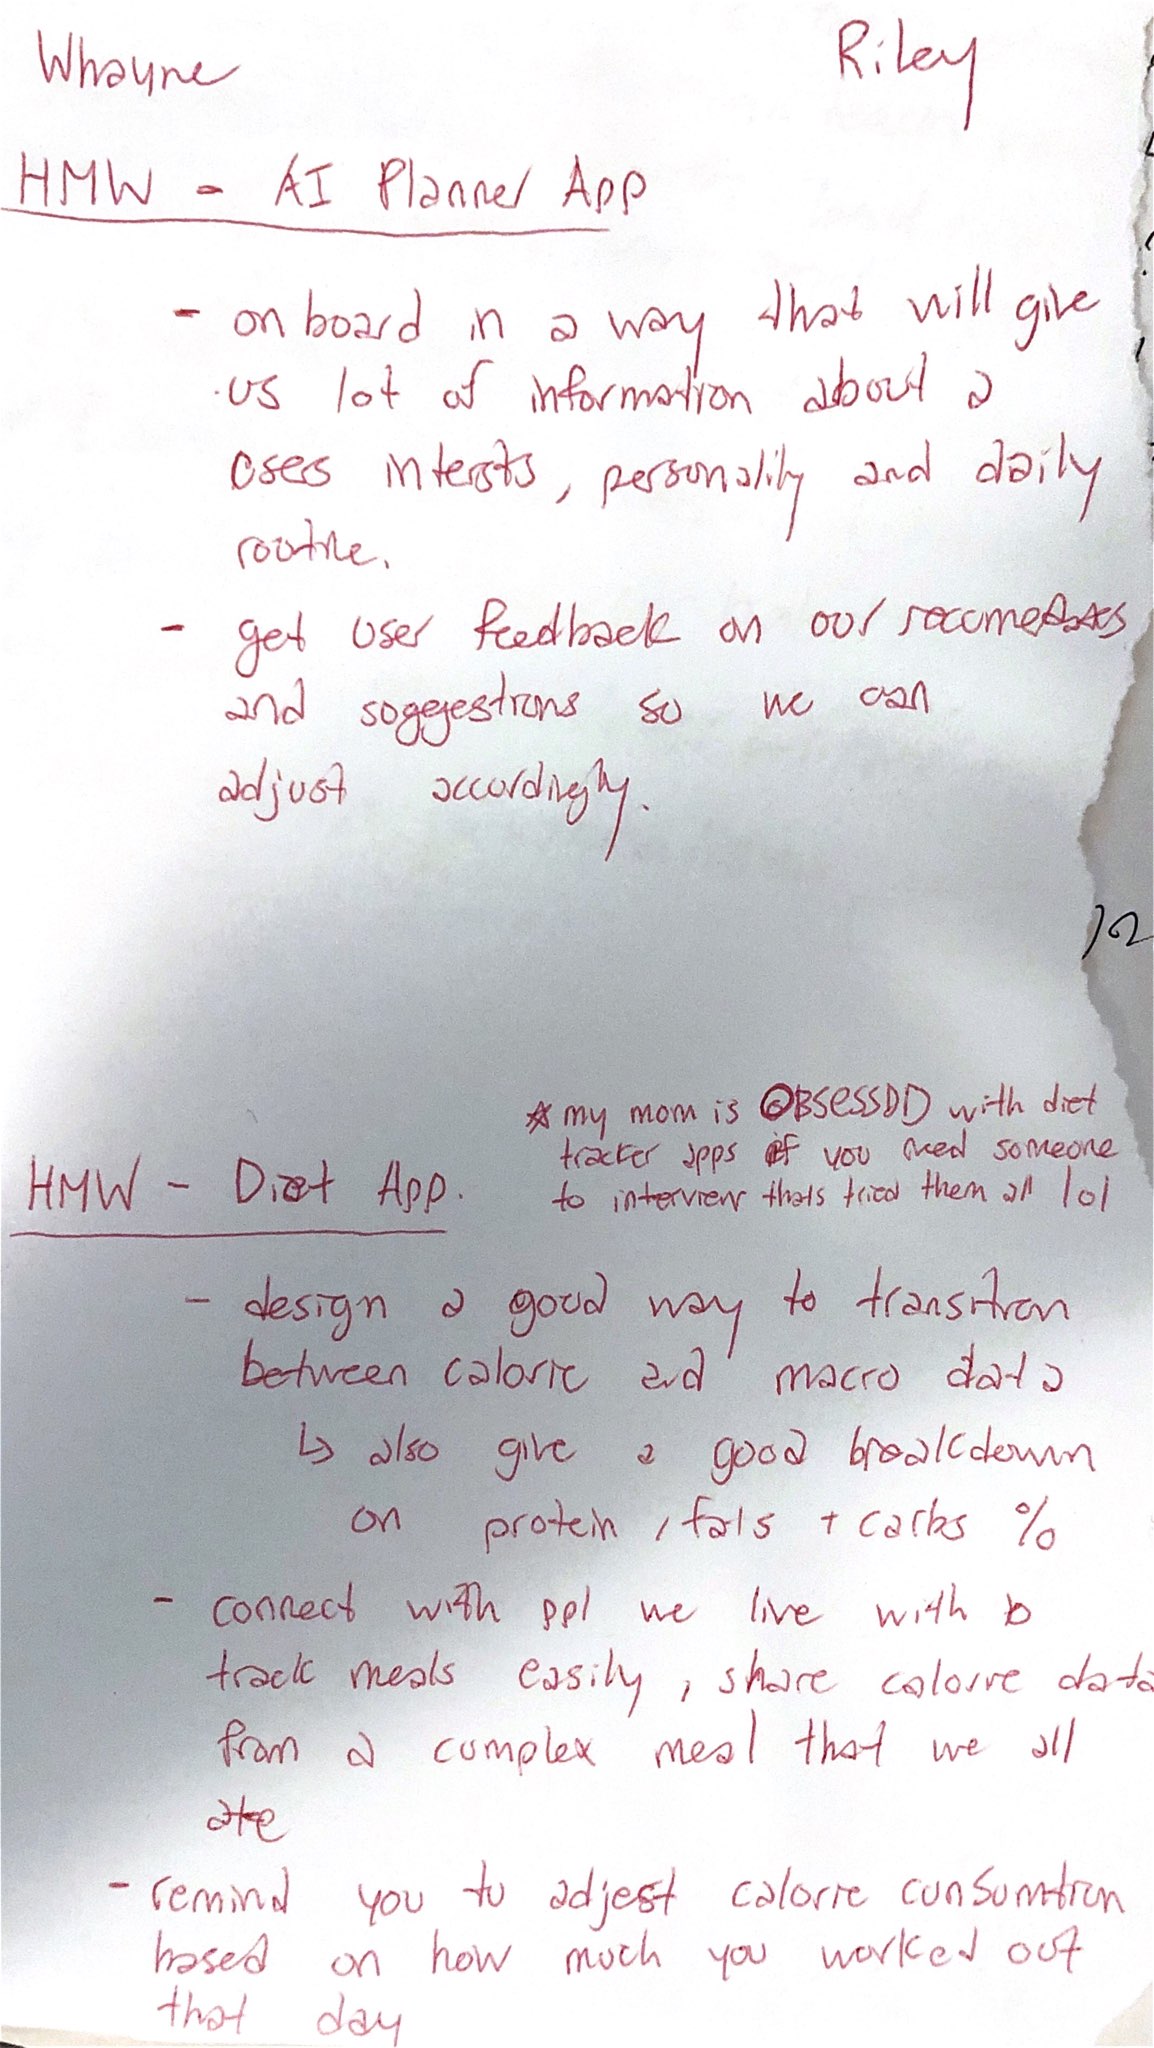 Whayne
Riley
HMW - AI Planner App
- onboard in a way that will give
us lot of information about a
users intersts, personality and daily
routine.
- get user feedback on our
and soggestions so we can
adjust accordingly.
☆ my mom is OBSESSDD with diet
tracker apps if you need someone
to interview thats tried them all lol
HMW - Diet App.
- design a good way to transition
between calorie and macro data
↳ also give a good breakdown
on protein, fats + carbs %
- connect with ppl we live with to
track meals easily, share calorie data
from a complex meal that we all
ate
- remind you to adjest calorie consumtion
based on how much you worked out
that day